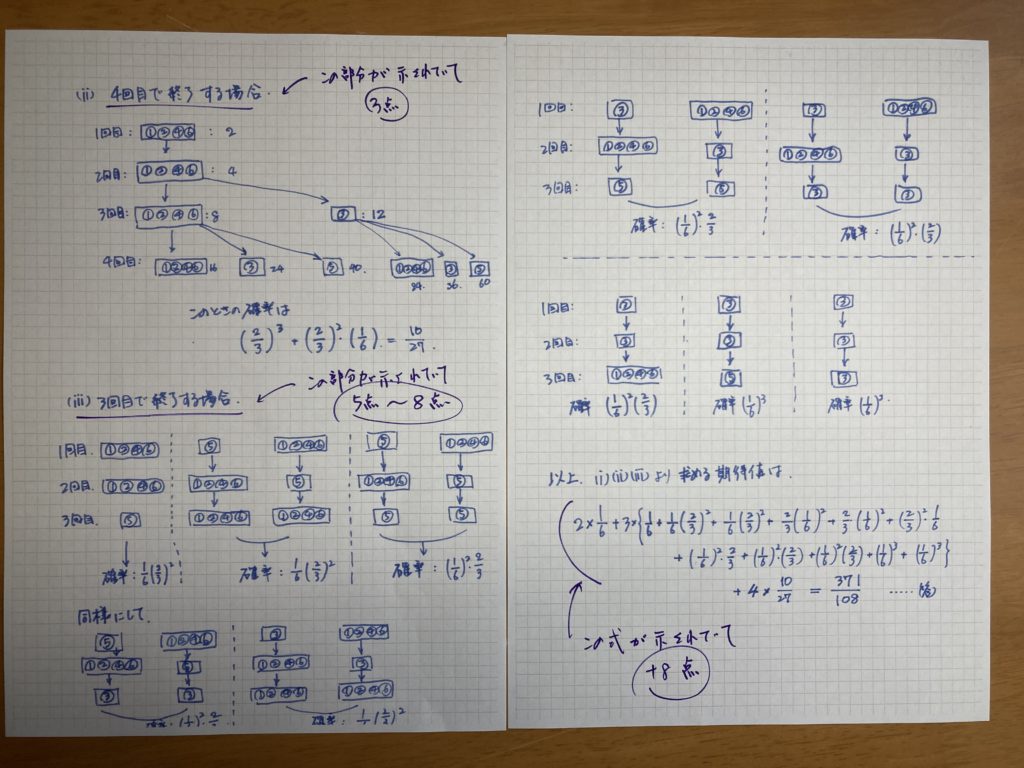 (ii) 4回目で終了する場合.
この部分が示されていて
3点
1回目: ①②④⑥ : 2
2回目: ①②④⑥ : 4
3回目: ①②④⑥ :8 ③ : 12
4回目: ①②④⑥ 16 ③ 24 ⑤ 40. ①②④⑥ ③ ⑤
24. 36. 60
このときの確率は
(2/3)^3 + (2/3)^2・(1/6) = 10/27.
(iii) 3回目で終了する場合.
この部分が示されていて
5点〜8点
1回目. ①②④⑥ ⑤ ①②④⑥ ⑤ ①②④⑥
2回目. ①②④⑥ ①②④⑥ ⑤ ①②④⑥ ⑤
3回目. ⑤ ①②④⑥ ①②④⑥ ⑤ ⑤
確率: 1/6(2/3)^2 確率: 1/6(2/3)^2 確率: (1/6)^2・2/3
同様にして.
⑤ ①②④⑥ ③ ①②④⑥
①②④⑥ ⑤ ①②④⑥ ③
③ ③ ①②④⑥ ①②④⑥
確率: (1/6)^2・2/3 確率: 1/6(2/3)^2
1回目: ③ ①②④⑥ ③ ①②④⑥
2回目: ①②④⑥ ③ ①②④⑥ ③
3回目: ⑤ ⑤ ③ ③
確率: (1/6)^2・2/3 確率: (1/6)^2・(2/3)
1回目: ③ ③ ③
2回目: ③ ③ ③
3回目: ①②④⑥ ⑤ ③
確率 (1/6)^2(2/3) 確率 (1/6)^3 確率 (1/6)^3.
以上. i)(ii)(iii)より求める期待値は.
2×1/6+3×{1/6+1/6(2/3)^2+1/6(2/3)^2+2/3(1/6)^2+2/3(1/6)^2+(2/3)^2・1/6
+(1/6)^2・2/3+(1/6)^2・(2/3)+(1/6)^2(2/3)+(1/6)^3+(1/6)^3}
+4×10/27 = 371/108 ……(答)
この式が示されていて
+8点